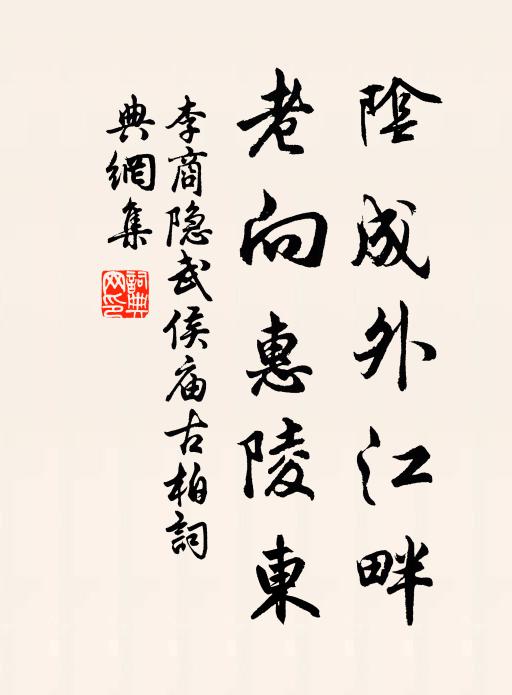 陰成外江畔
老向惠陵東
李商隐武侯庙古柏詞
典網集
詞典網印